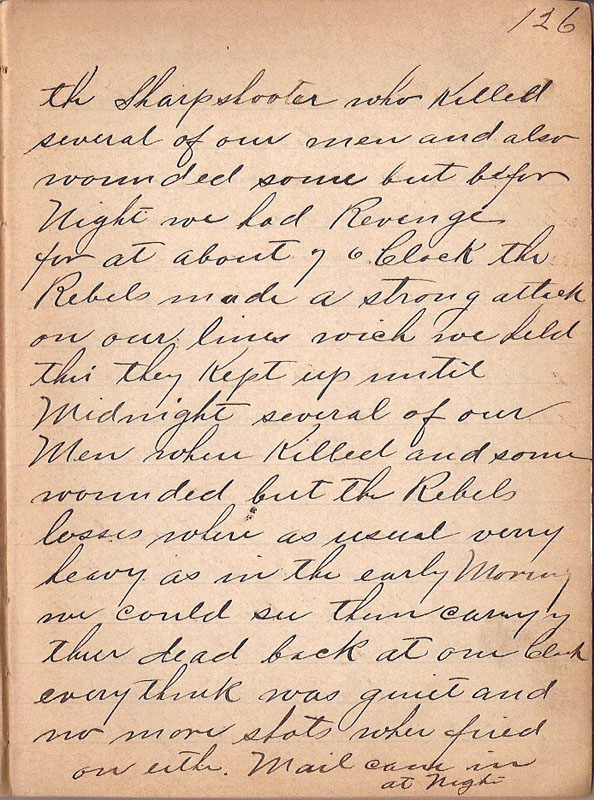 126
the Sharpshooter who Killed
several of our men and also
wounded some but befor
Night we had Revenge
for at about 7 o Clock the
Rebels made a strong attack
on our lines wich we held
this they Kept up until
Midnight several of our
Men where Killed and some
wounded but the Rebels
losses where as usual verry
heavy as in the early Morning
we could see them carryg
their dead back at one Clock
every think was quiet and
no more shots wher fired
on eithr. Mail came in
at Night